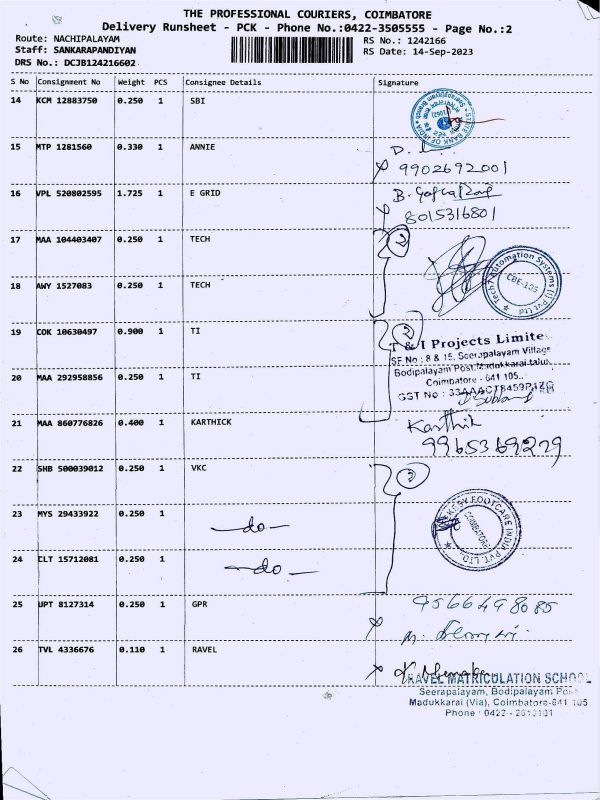 THE PROFESSIONAL COURIERS, COIMBATORE
Delivery Runsheet - PCK - Phone No.:0422-3505555 - Page No.:2
Route: NACHIPALAYAM
Staff: SANKARAPANDIYAN
DRS No.: DCJB124216602
RS No.: 1242166
RS Date: 14-Sep-2023
S No Consignment No Weight PCS Consignee Details Signature
14 KCM 12883750 0.250 1 SBI
STATE BANK OF INDIA
15 MTP 1281560 0.330 1 ANNIE
9902692001
16 VPL 520802595 1.725 1 E GRID
8015316801
17 MAA 104403407 0.250 1 TECH
2
Automation Systems (I) Pvt Ltd
CBE-105
18 AWY 1527083 0.250 1 TECH
19 COK 10630497 0.900 1 TI
2
T & I Projects Limite
SF No : 8 & 15, Seerapalayam Village
Bodipalayam Post, Madukkarai-taluk
Coimbatore - 641 105.
GST No :
20 MAA 292958856 0.250 1 TI
21 MAA 860776826 0.400 1 KARTHICK
Karthik
9965369279
22 SHB 500039012 0.250 1 VKC
FOOTCARE INDIA PVT. LTD.
COIMBATORE
23 MYS 29433922 0.250 1
do
24 CLT 15712081 0.250 1
do
25 UPT 8127314 0.250 1 GPR
9566498085
26 TVL 4336676 0.110 1 RAVEL
RAVEL MATRICULATION SCHOOL
Seerapalayam, Bodipalayam Post
Madukkarai (Via), Coimbatore-641 105
Phone : 0422-